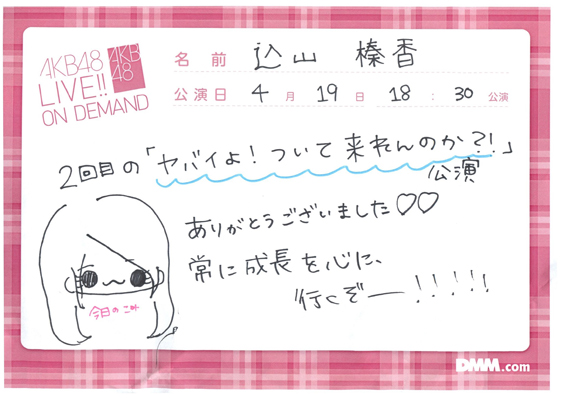 AKB48
LIVE!!
ON DEMAND
AKB
48
名前 込山 榛香
公演日 4月 19日 18:30 公演
2回目の「ヤバイよ!ついて来れんのか?!」
公演
ありがとうございました♡♡
常に成長を心に、
行くぞー!!!!!
今日のこみ
DMM.com